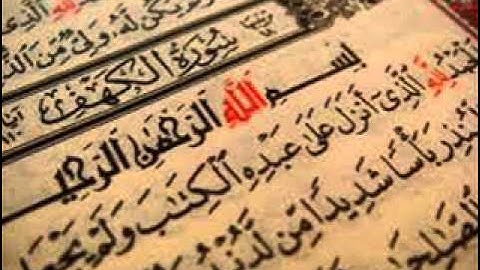 وَلَمْ يَكُن لَّهُۥ وَلِىٌّ مِّنَ الذُّ
سُورَةُ الكَهْفِ
بِسْمِ اللَّهِ الرَّحْمَٰنِ الرَّحِيمِ
الْحَمْدُ لِلَّهِ الَّذِىٓ أَنزَلَ عَلَىٰ عَبْدِهِ الْكِتَٰبَ وَلَمْ يَجْعَل
لِّيُنذِرَ بَأْسًا شَدِيدًا مِّن لَّدُنْهُ
الصَّٰلِحَٰتِ